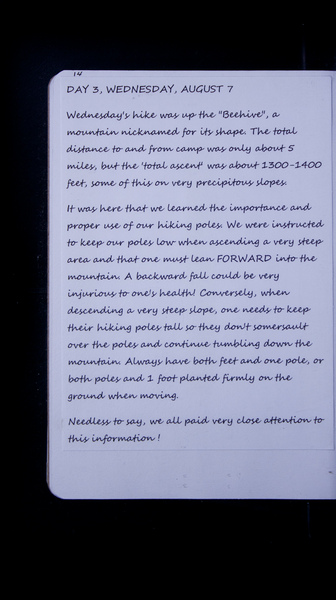 14
DAY 3, WEDNESDAY, AUGUST 7
Wednesday's hike was up the "Beehive", a
mountain nicknamed for its shape. The total
distance to and from camp was only about 5
miles, but the 'total ascent' was about 1300-1400
feet, some of this on very precipitous slopes.
It was here that we learned the importance and
proper use of our hiking poles. We were instructed
to keep our poles low when ascending a very steep
area and that one must lean FORWARD into the
mountain. A backward fall could be very
injurious to one's health! Conversely, when
descending a very steep slope, one needs to keep
their hiking poles tall so they don't somersault
over the poles and continue tumbling down the
mountain. Always have both feet and one pole, or
both poles and 1 foot planted firmly on the
ground when moving.
Needless to say, we all paid very close attention to
this information!